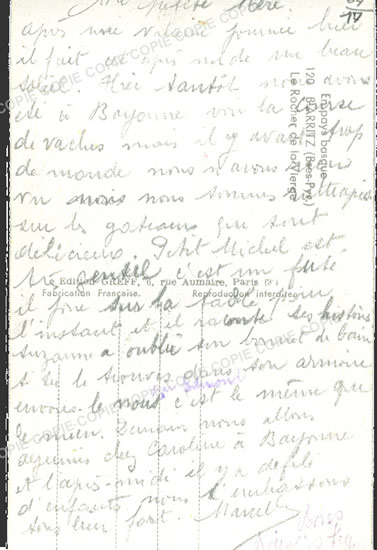 Ma petite Mère.
Après une vilaine journée hier
il fait après midi un beau
soleil. Hier tantôt nous avons
été à Bayonne voir la course
de vaches mais il y avait trop
de monde nous n'avons rien
vu nous nous sommes rattrapés
sur les gateaux qui sont
délicieux. Petit Michel est
très gentil c'est un futé
il joue sur la table pour
l'instant et il raconte ses histoires
Suzanne a oublié son bonnet de bain
si tu le trouves dans son armoire
envoie-le nous c'est le même que
le mien. Demain nous allons
déjeuner chez Caroline à Bayonne
et l'après-midi il y a défilé
d'enfants nous t'embrassons
tous bien fort. Marcel
En pays basque
120 BIARRITZ (Bses-Pyr.)
Le Rocher de la Vierge
Edition GREFF, 6, rue Aumaire, Paris (3e)
Fabrication Française. Reproduction interdite
COPIE COPIE COPIE COPIE